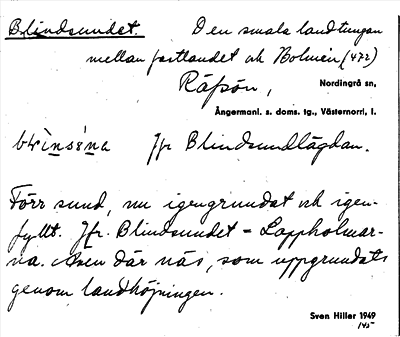 Blindsundet. Den smala landtungan
mellan fastlandet och Bolmen (472)
Räfsön, Nordingrå sn,
Ångermanl. s. doms. tg., Västernorrl. l.
Jfr Blindsundlägdan.
Förr sund, nu igengrundat och igen-
fyllt. Jfr. Blindsundet - Lappholmar-
na. Även där näs, som uppgrundats
genom landhöjningen.
Sven Hiller 1949